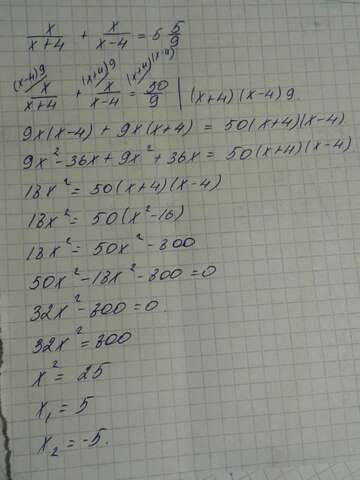 x/(x+4) + x/(x-4) = 5 5/9
(x-4)9 (x+4)9 (x+4)(x-4)
x/(x+4) + x/(x-4) = 50/9 | (x+4)(x-4)9.
9x(x-4) + 9x(x+4) = 50(x+4)(x-4)
9x² - 36x + 9x² + 36x = 50(x+4)(x-4)
18x² = 50(x+4)(x-4)
18x² = 50(x² - 16)
18x² = 50x² - 800
50x² - 18x² - 800 = 0
32x² - 800 = 0.
32x² = 800
x² = 25
x₁ = 5
x₂ = -5.